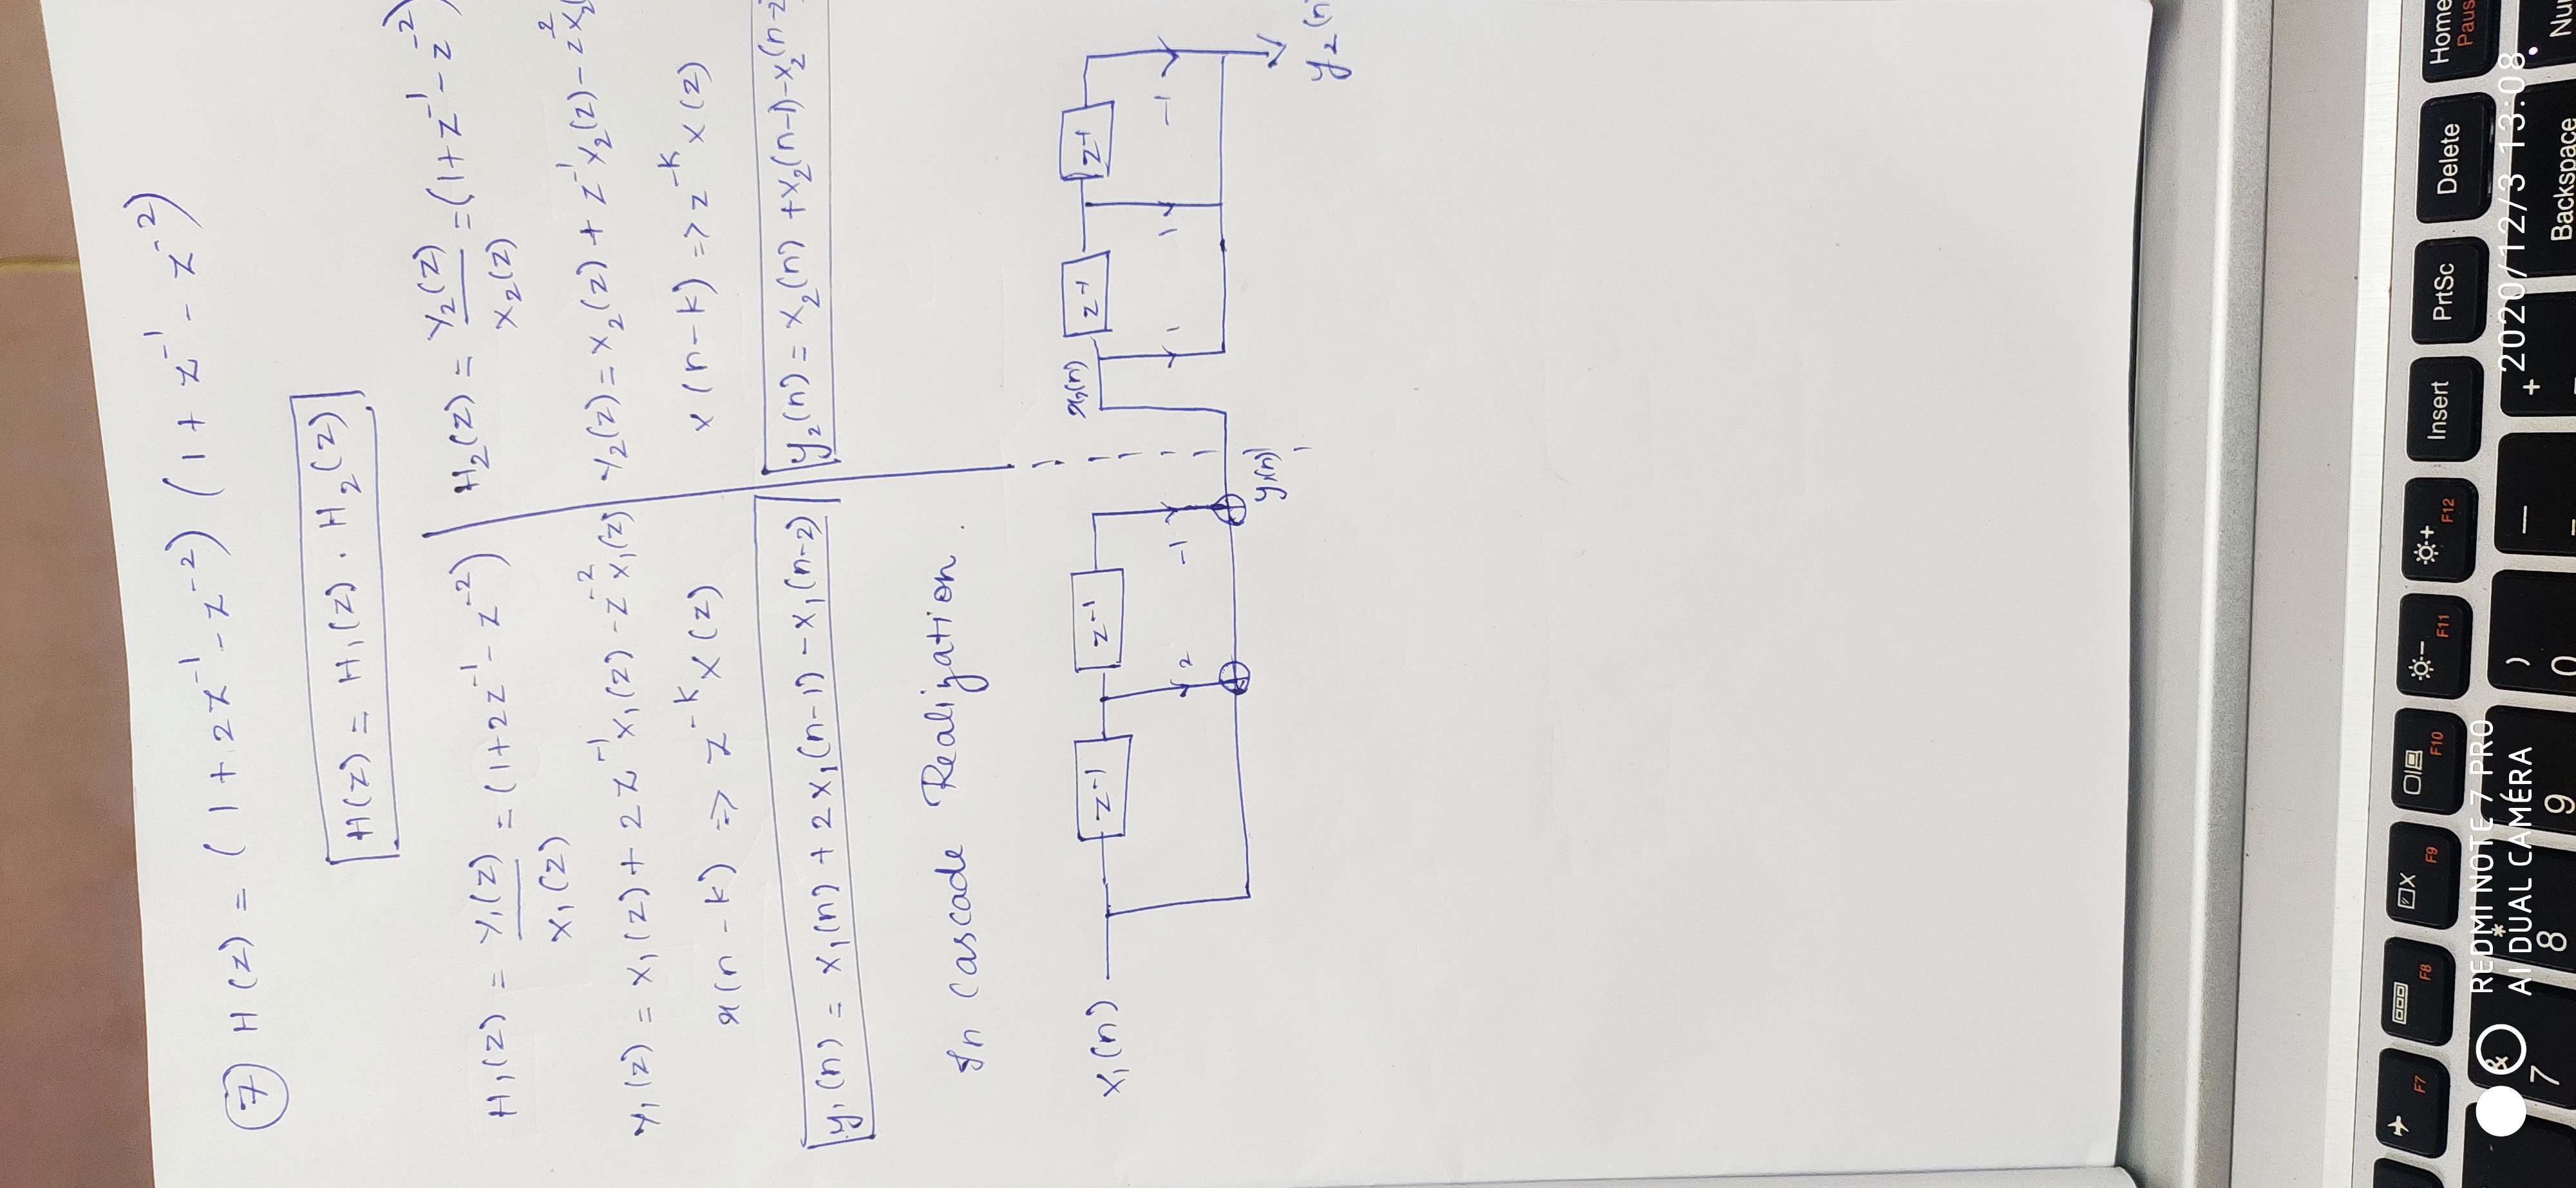 ⑦ H(z) = (1 + 2z⁻¹ - z⁻²) (1 + z⁻¹ - z⁻²)
H(z) = H₁(z) . H₂(z)
H₁(z) = Y₁(z) / X₁(z) = (1+2z⁻¹ - z⁻²)
Y₁(z) = X₁(z) + 2z⁻¹X₁(z) - z⁻²X₁(z)
x(n-k) => z⁻ᵏ X(z)
y₁(n) = x₁(n) + 2x₁(n-1) - x₁(n-2)
H₂(z) = Y₂(z) / X₂(z) = (1+z⁻¹ - z⁻²)
Y₂(z) = X₂(z) + z⁻¹X₂(z) - z²X₂(
x(n-k) => z⁻ᵏ X(z)
y₂(n) = x₂(n) + x₂(n-1) - x₂(n-2
In Cascade Realization.
x₁(n) z⁻¹ z⁻¹ x₂(n) z⁻¹ z⁻¹
2 -1 1 1 -1
y₁(n)
y₂(n
F7 F8 F9 F10 F11 F12 Insert PrtSc Delete Home
Paus
REDMI NOTE 7 PRO
AI DUAL CAMERA
2020/12/3 13:08
& * ( ) — +
7 8 9 0 – Backspace Nu